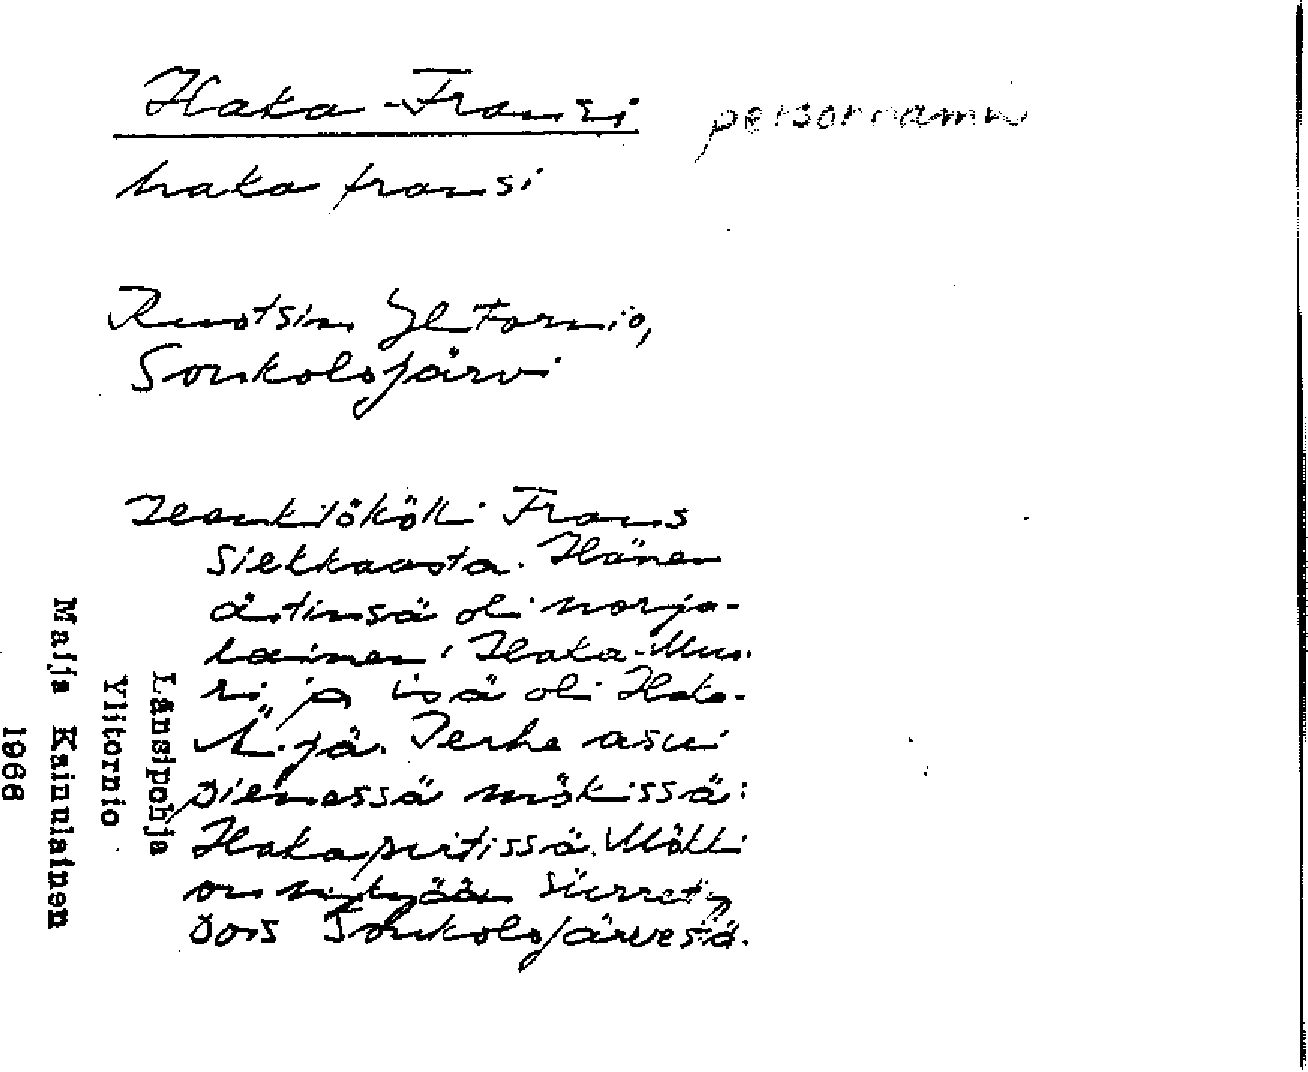 Haka-Fransi personnamn
haka fransi
Ruotsin Ylitornio,
Soukolojärvi
Henkilökölli Frans
Siekkaasta. Hänen
äitinsä oli norja-
lainen, Haka-Muu-
ri ja isä oli Haka-
Äijä. Perhe asui
pienessä mökissä:
Hakapirtissä. Mökki
on nykyään siirretty
pois Soukolojärvestä.
Länsipohja
Ylitornio
Maija Kainulainen
1968